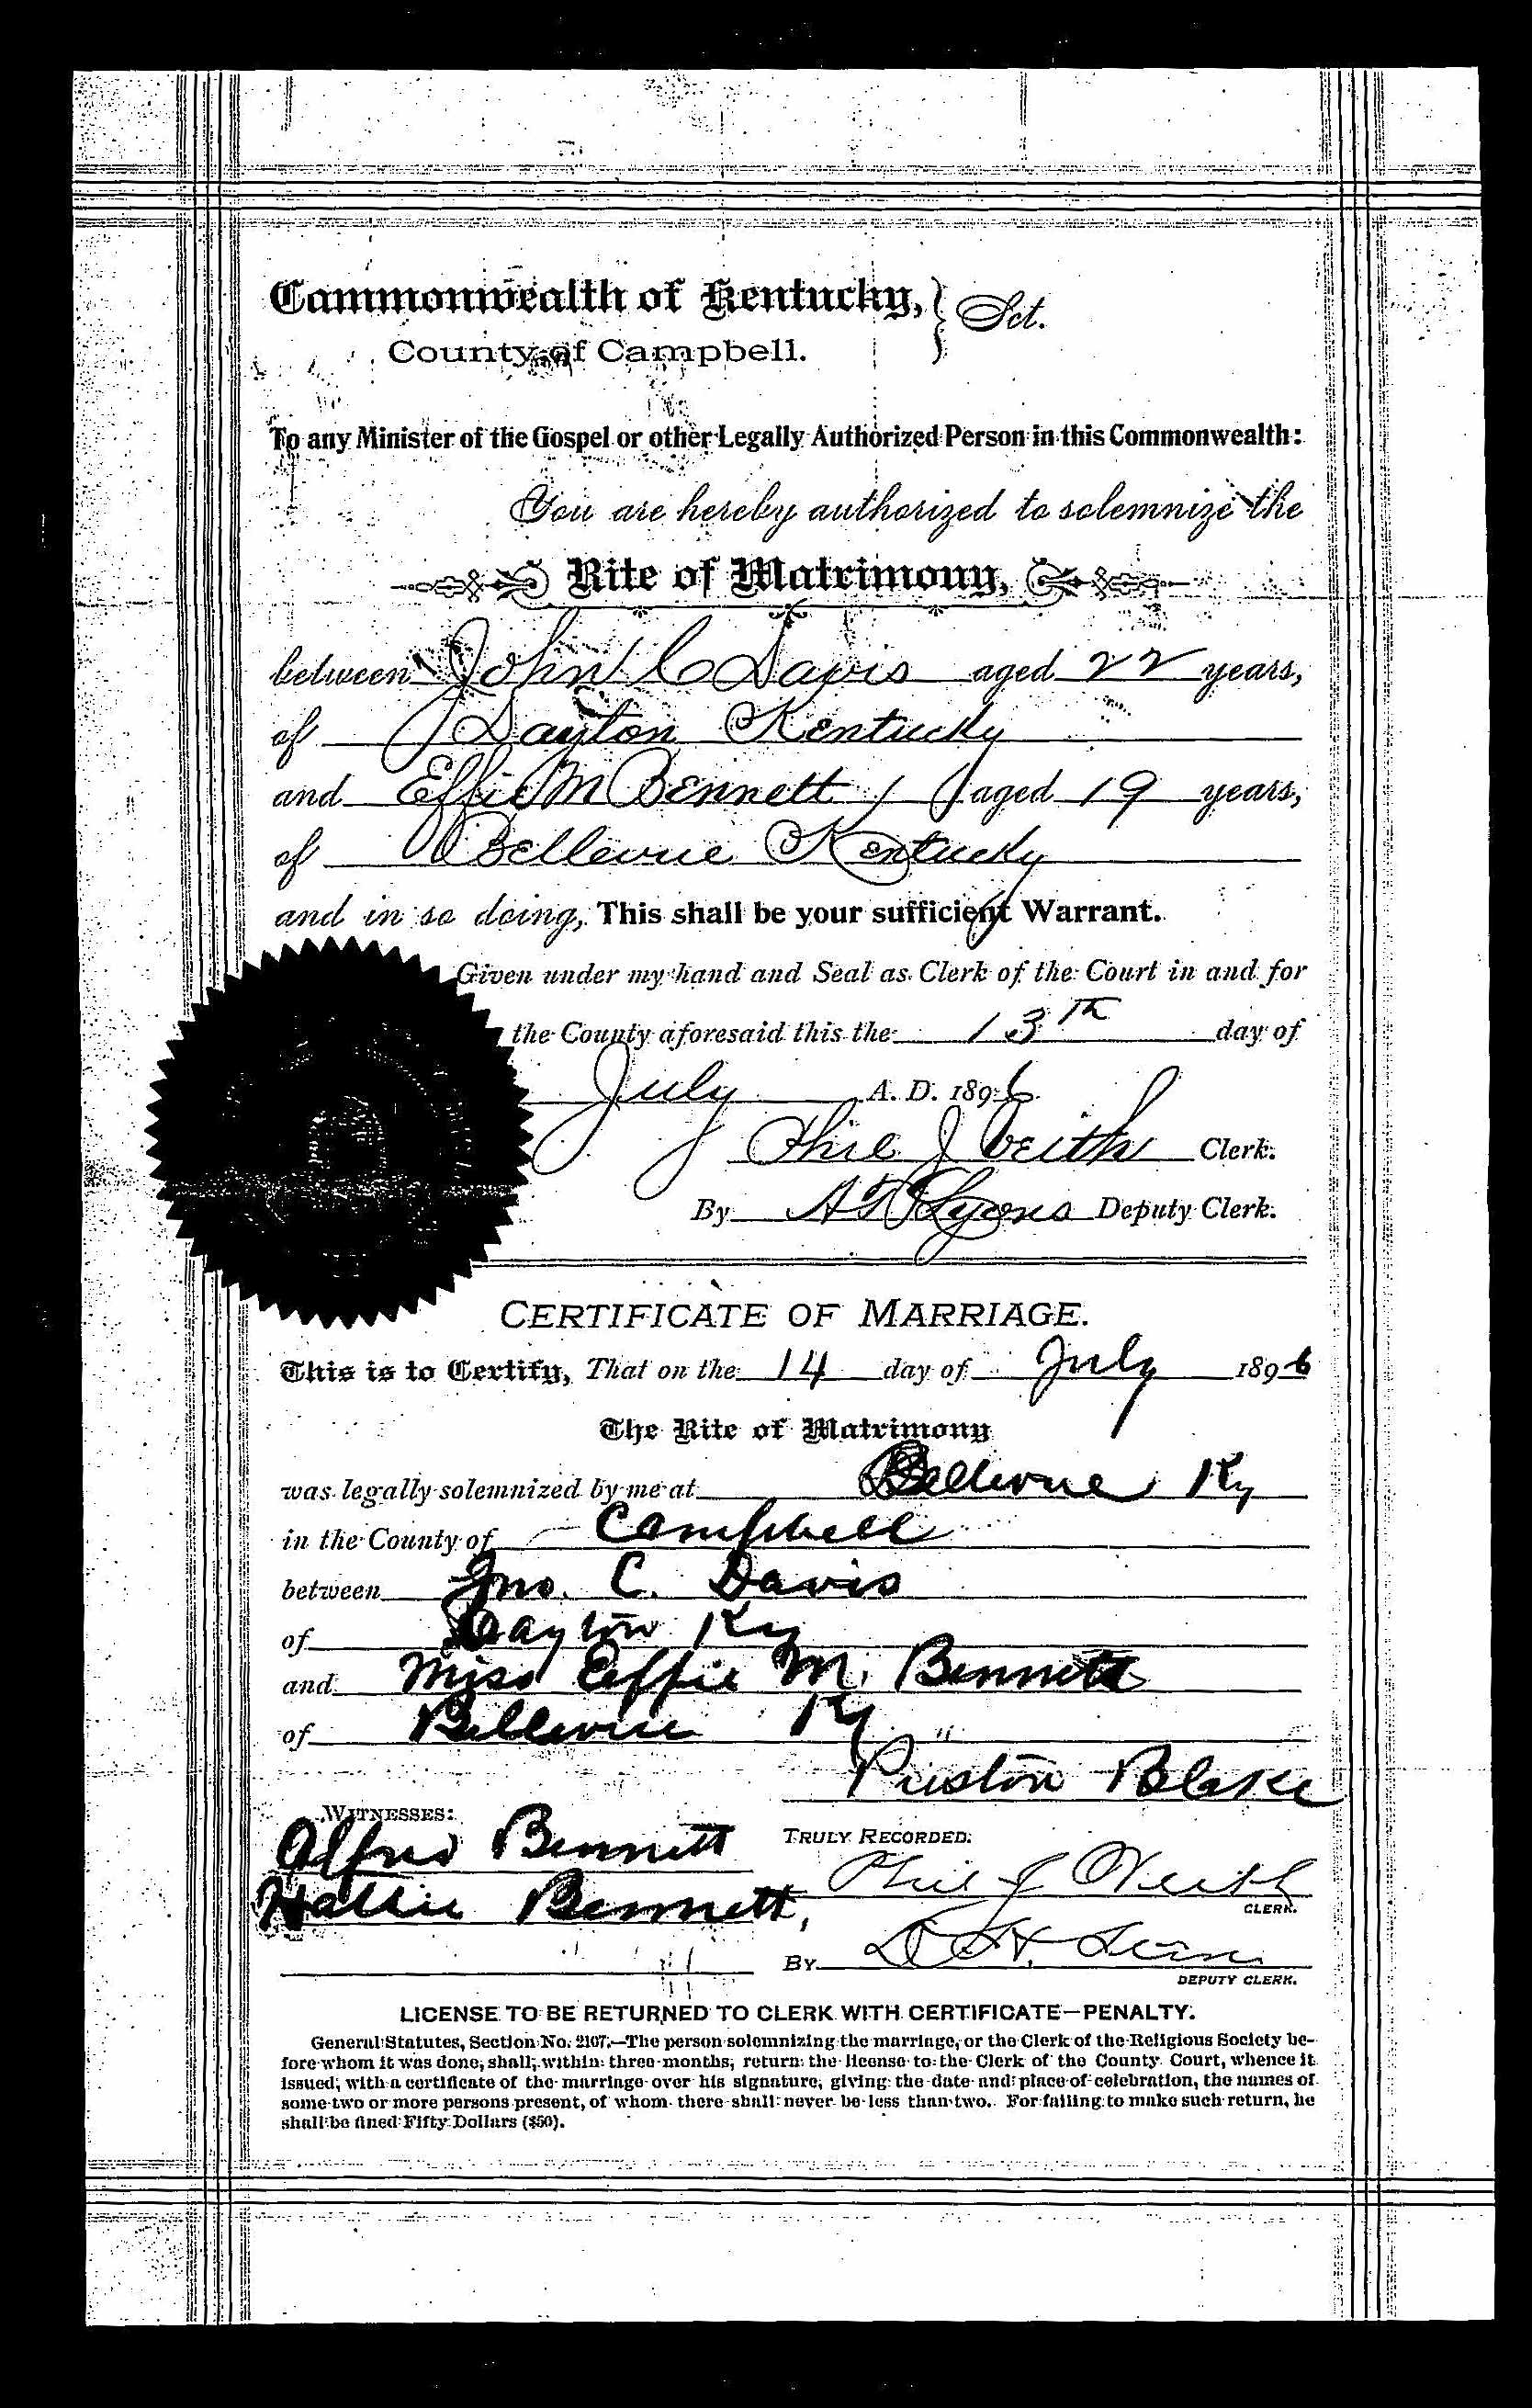 Commonwealth of Kentucky, } Sct.
County of Campbell.
To any Minister of the Gospel or other Legally Authorized Person in this Commonwealth:
You are hereby authorized to solemnize the
Rite of Matrimony,
between John C Davis aged 22 years,
of Dayton Kentucky
and Effie M Bennett aged 19 years,
of Bellevue Kentucky
and in so doing, This shall be your sufficient Warrant.
Given under my hand and Seal as Clerk of the Court in and for
the County aforesaid this the 13th day of
July A. D. 1896
Phil J Veith Clerk.
By Lyons Deputy Clerk.
CERTIFICATE OF MARRIAGE.
This is to Certify, That on the 14 day of July 1896
The Rite of Matrimony
was legally solemnized by me at Bellevue Ky
in the County of Campbell
between Jno. C. Davis
of Dayton Ky
and Miss Effie M. Bennett
of Bellevue Ky
Preston Blake
WITNESSES:
Alfred Bennett
Hallie Bennett,
TRULY RECORDED:
Phil J Veith
CLERK.
BY
DEPUTY CLERK.
LICENSE TO BE RETURNED TO CLERK WITH CERTIFICATE—PENALTY.
General Statutes, Section No. 2107.—The person solemnizing the marriage, or the Clerk of the Religious Society be-
fore whom it was done, shall, within three months, return the license to the Clerk of the County Court, whence it
issued, with a certificate of the marriage over his signature, giving the date and place of celebration, the names of
some two or more persons present, of whom there shall never be less than two. For failing to make such return, he
shall be fined Fifty Dollars ($50).